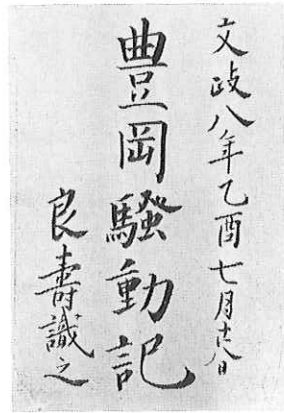 文政八年乙酉七月十八日
豊岡騒動記
良壽識之